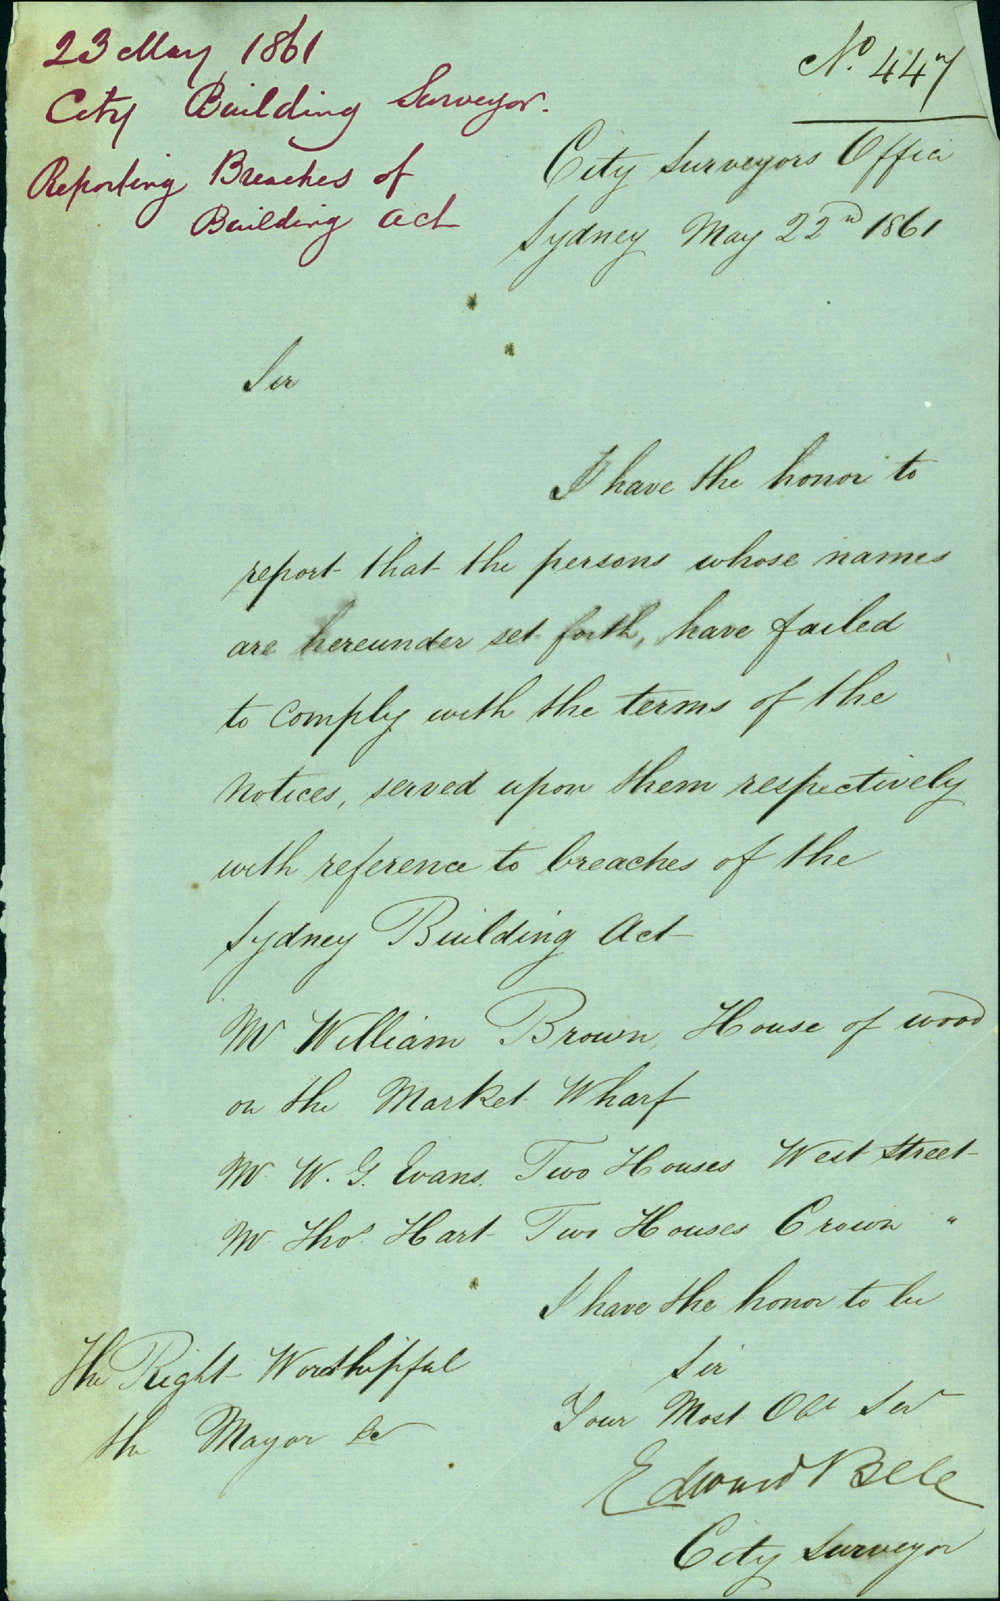 23 May 1861
City Building Surveyor.
Reporting Breaches of
Building Act
No. 447
City Surveyors Office
Sydney May 22nd 1861
Sir
I have the honor to
report that the persons whose names
are hereunder set forth, have failed
to comply with the terms of the
Notices, served upon them respectively
with reference to breaches of the
Sydney Building Act
Mr William Brown, House of wood
on the Market Wharf
Mr W. G. Evans. Two Houses West Street
Mr Thos. Hart Two Houses Crown "
I have the honor to be
Sir
Your Most Obt Servt
Edward Bell
City Surveyor
The Right Worshipful
the Mayor &c